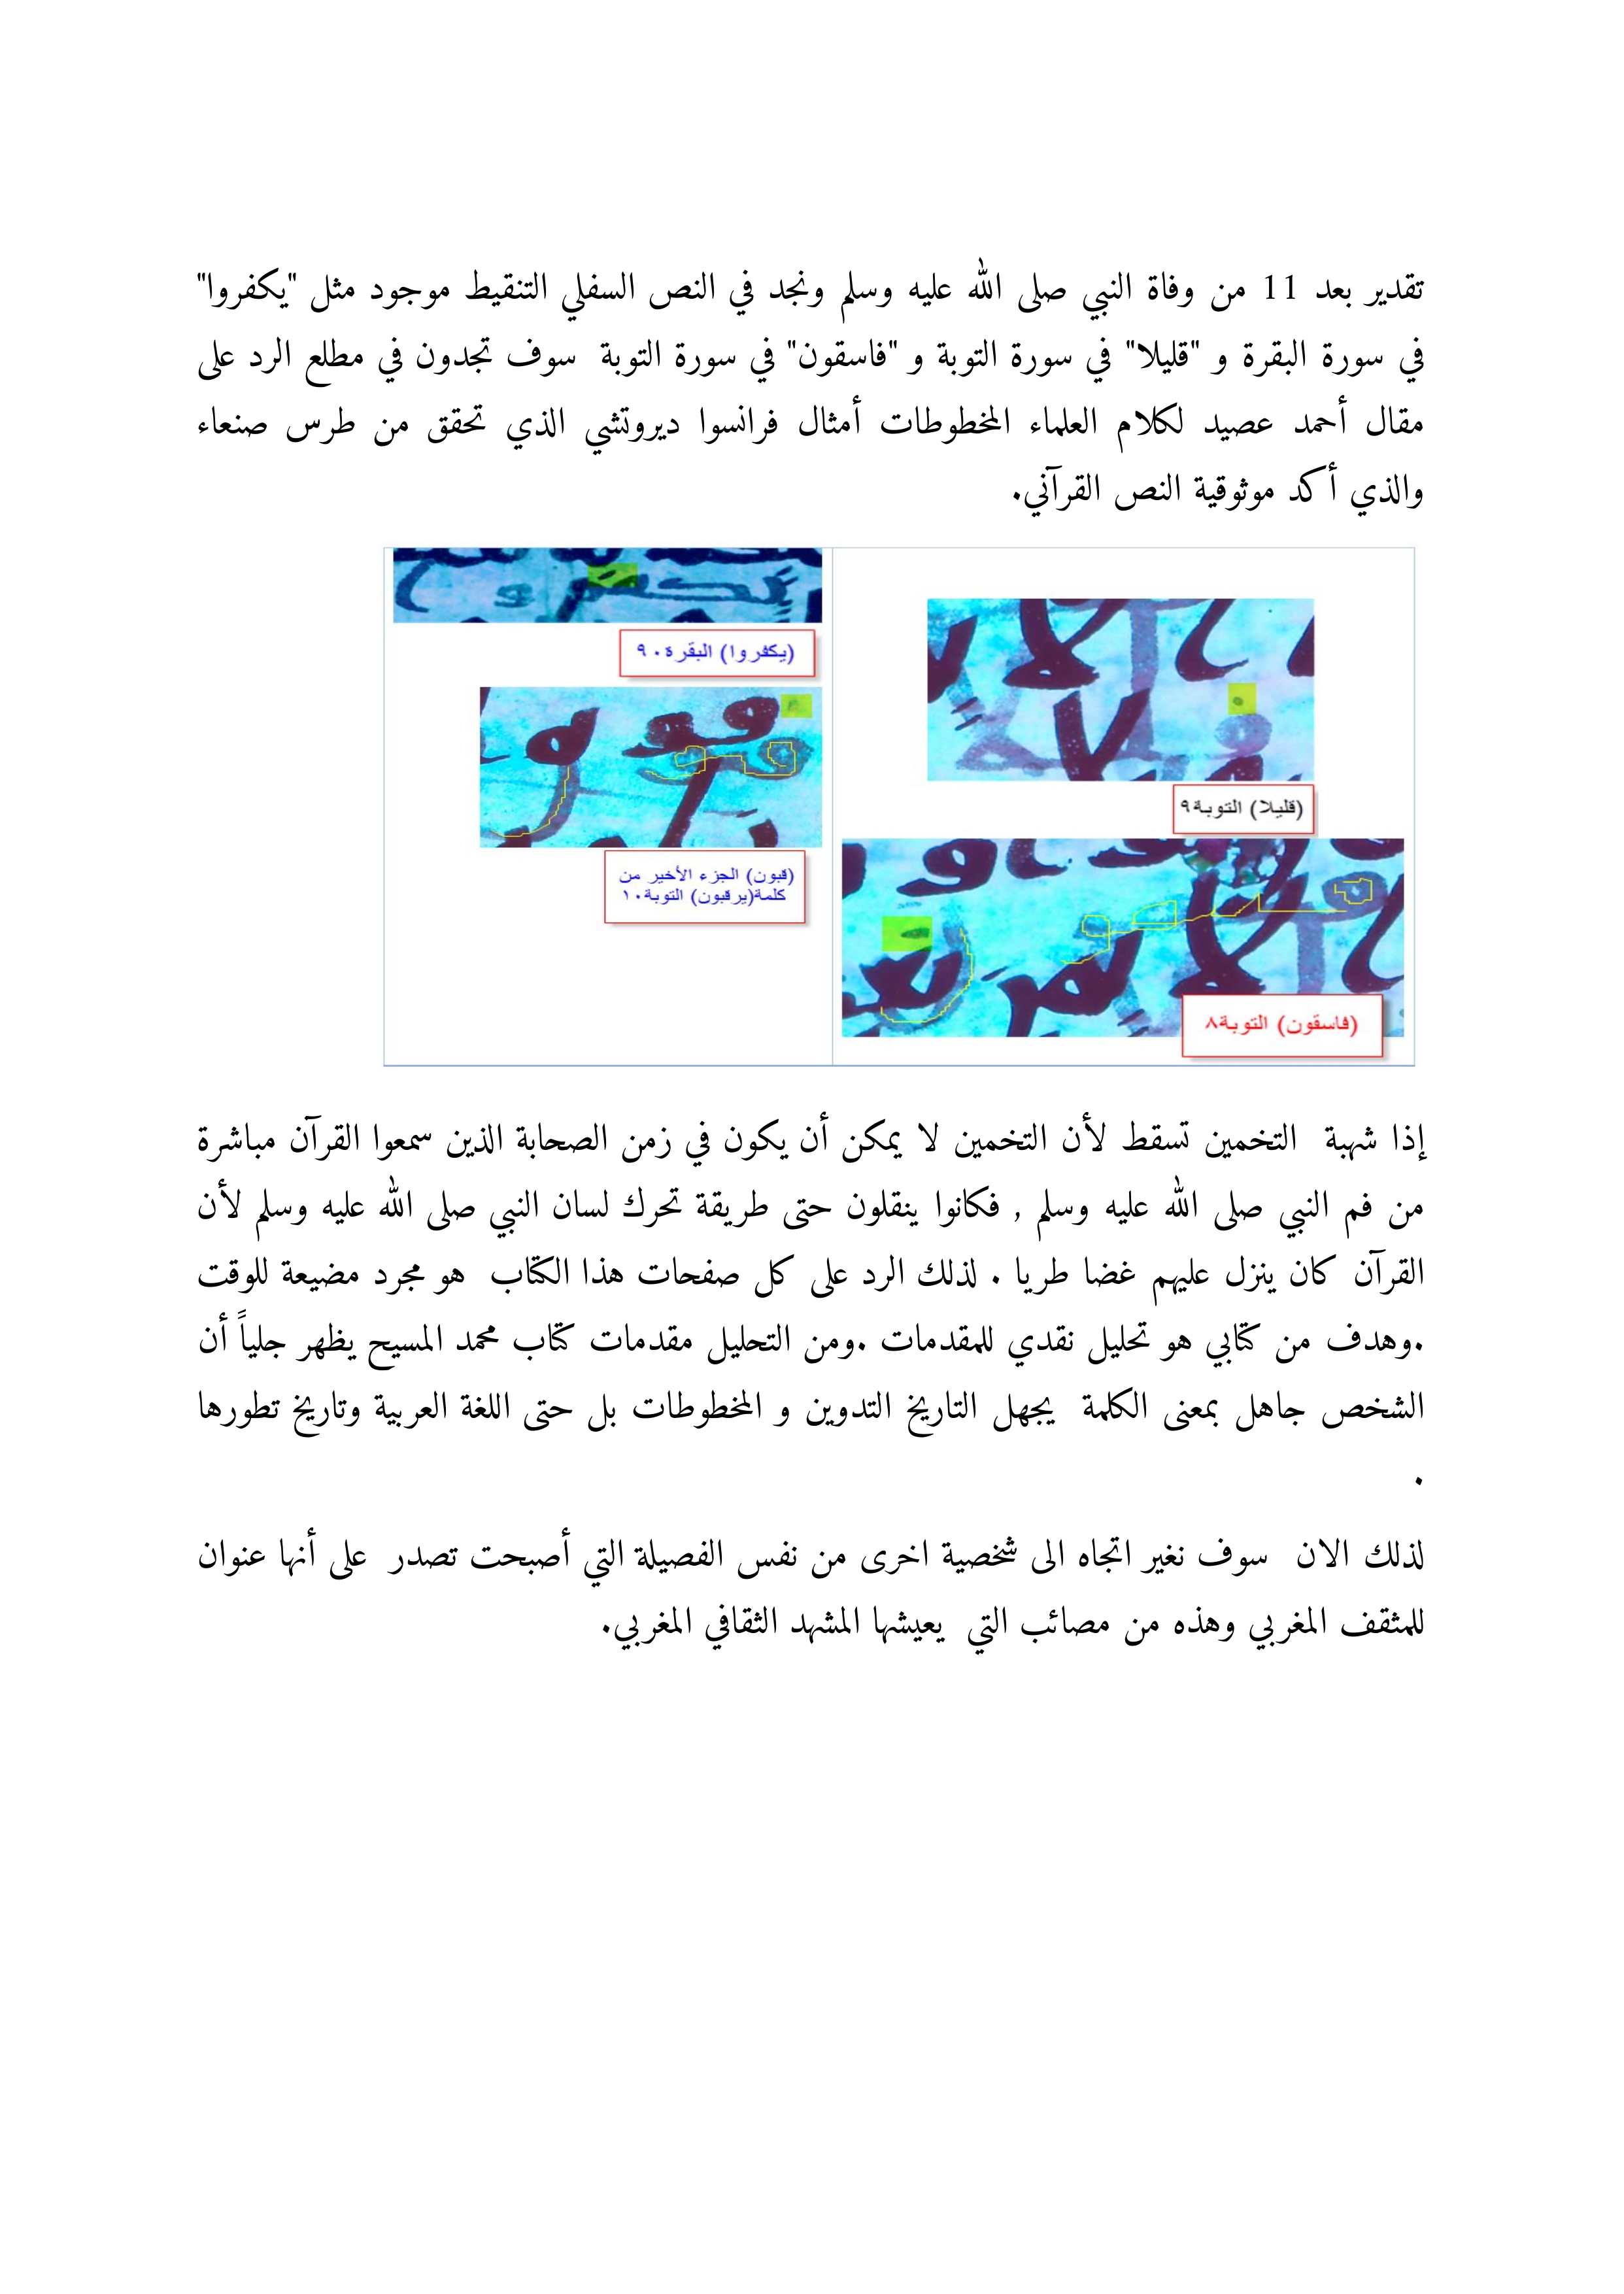 تقدير بعد 11 من وفاة النبي صلى الله عليه وسلم ونجد في النص السفلي التنقيط موجود مثل "يكفروا"
في سورة البقرة و "قليلا" في سورة التوبة و "فاسقون" في سورة التوبة سوف تجدون في مطلع الرد على
مقال أحمد عصيد لكلام العلماء المخطوطات أمثال فرانسوا ديروتشي الذي تحقق من طرس صنعاء
والذي أكد موثوقية النص القرآني.
(يكفروا) البقرة٩٠
(قليلا) التوبة٩
(قبون) الجزء الأخير من
كلمة(يرقبون) التوبة١٠
(فاسقون) التوبة٨
إذا شهبة التخمين تسقط لأن التخمين لا يمكن أن يكون في زمن الصحابة الذين سمعوا القرآن مباشرة
من فم النبي صلى الله عليه وسلم , فكانوا ينقلون حتى طريقة تحرك لسان النبي صلى الله عليه وسلم لأن
القرآن كان ينزل عليهم غضا طريا . لذلك الرد على كل صفحات هذا الكتاب هو مجرد مضيعة للوقت
.وهدف من كتابي هو تحليل نقدي للمقدمات .ومن التحليل مقدمات كتاب محمد المسيح يظهر جلياً أن
الشخص جاهل بمعنى الكلمة يجهل التاريخ التدوين و المخطوطات بل حتى اللغة العربية وتاريخ تطورها
.
لذلك الان سوف نغير اتجاه الى شخصية اخرى من نفس الفصيلة التي أصبحت تصدر على أنها عنوان
للمثقف المغربي وهذه من مصائب التي يعيشها المشهد الثقافي المغربي.